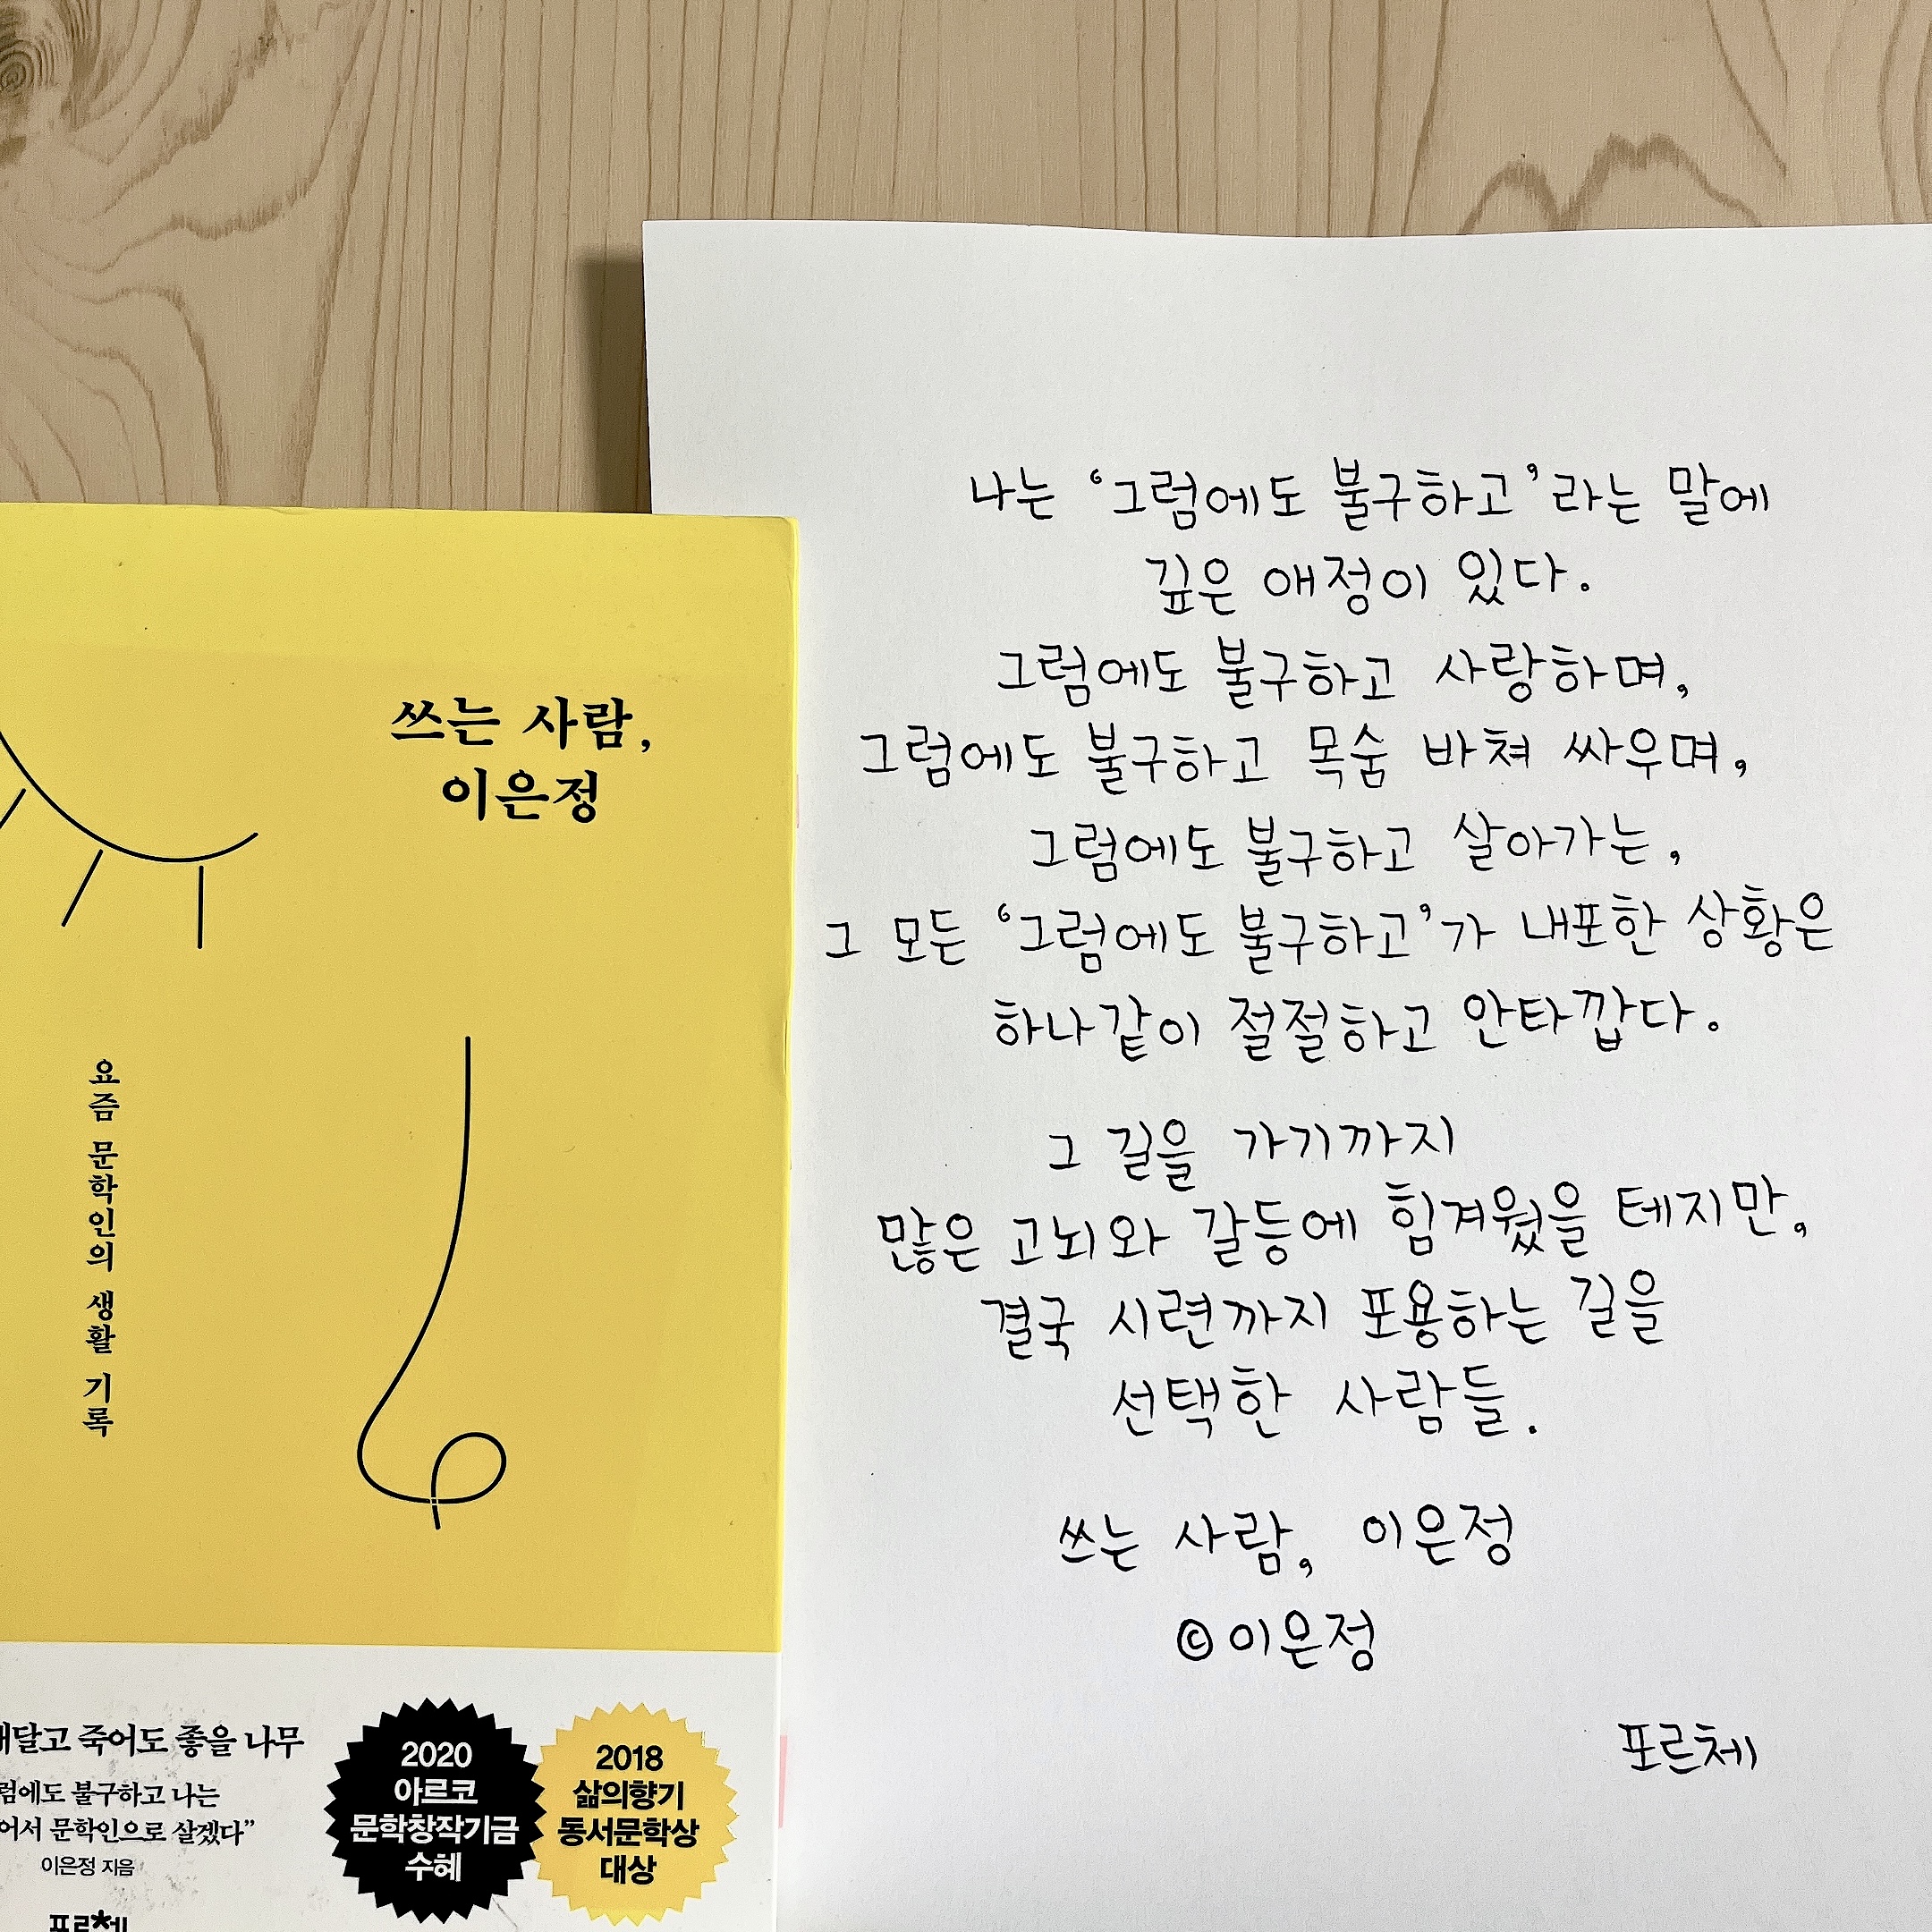 쓰는 사람,
이은정
요즘 문학인의 생활 기록
죽어도 좋을 나무
불구하고 나는
문학인으로 살겠다”
이은정 지음
2020
아르코
문학창작기금
수혜
2018
삶의향기
동서문학상
대상
나는 ‘그럼에도 불구하고’라는 말에
깊은 애정이 있다.
그럼에도 불구하고 사랑하며,
그럼에도 불구하고 목숨 바쳐 싸우며,
그럼에도 불구하고 살아가는,
그 모든 ‘그럼에도 불구하고’가 내포한 상황은
하나같이 절절하고 안타깝다.
그 길을 가기까지
많은 고뇌와 갈등에 힘겨웠을 테지만,
결국 시련까지 포용하는 길을
선택한 사람들.
쓰는 사람, 이은정
©이은정
포르체